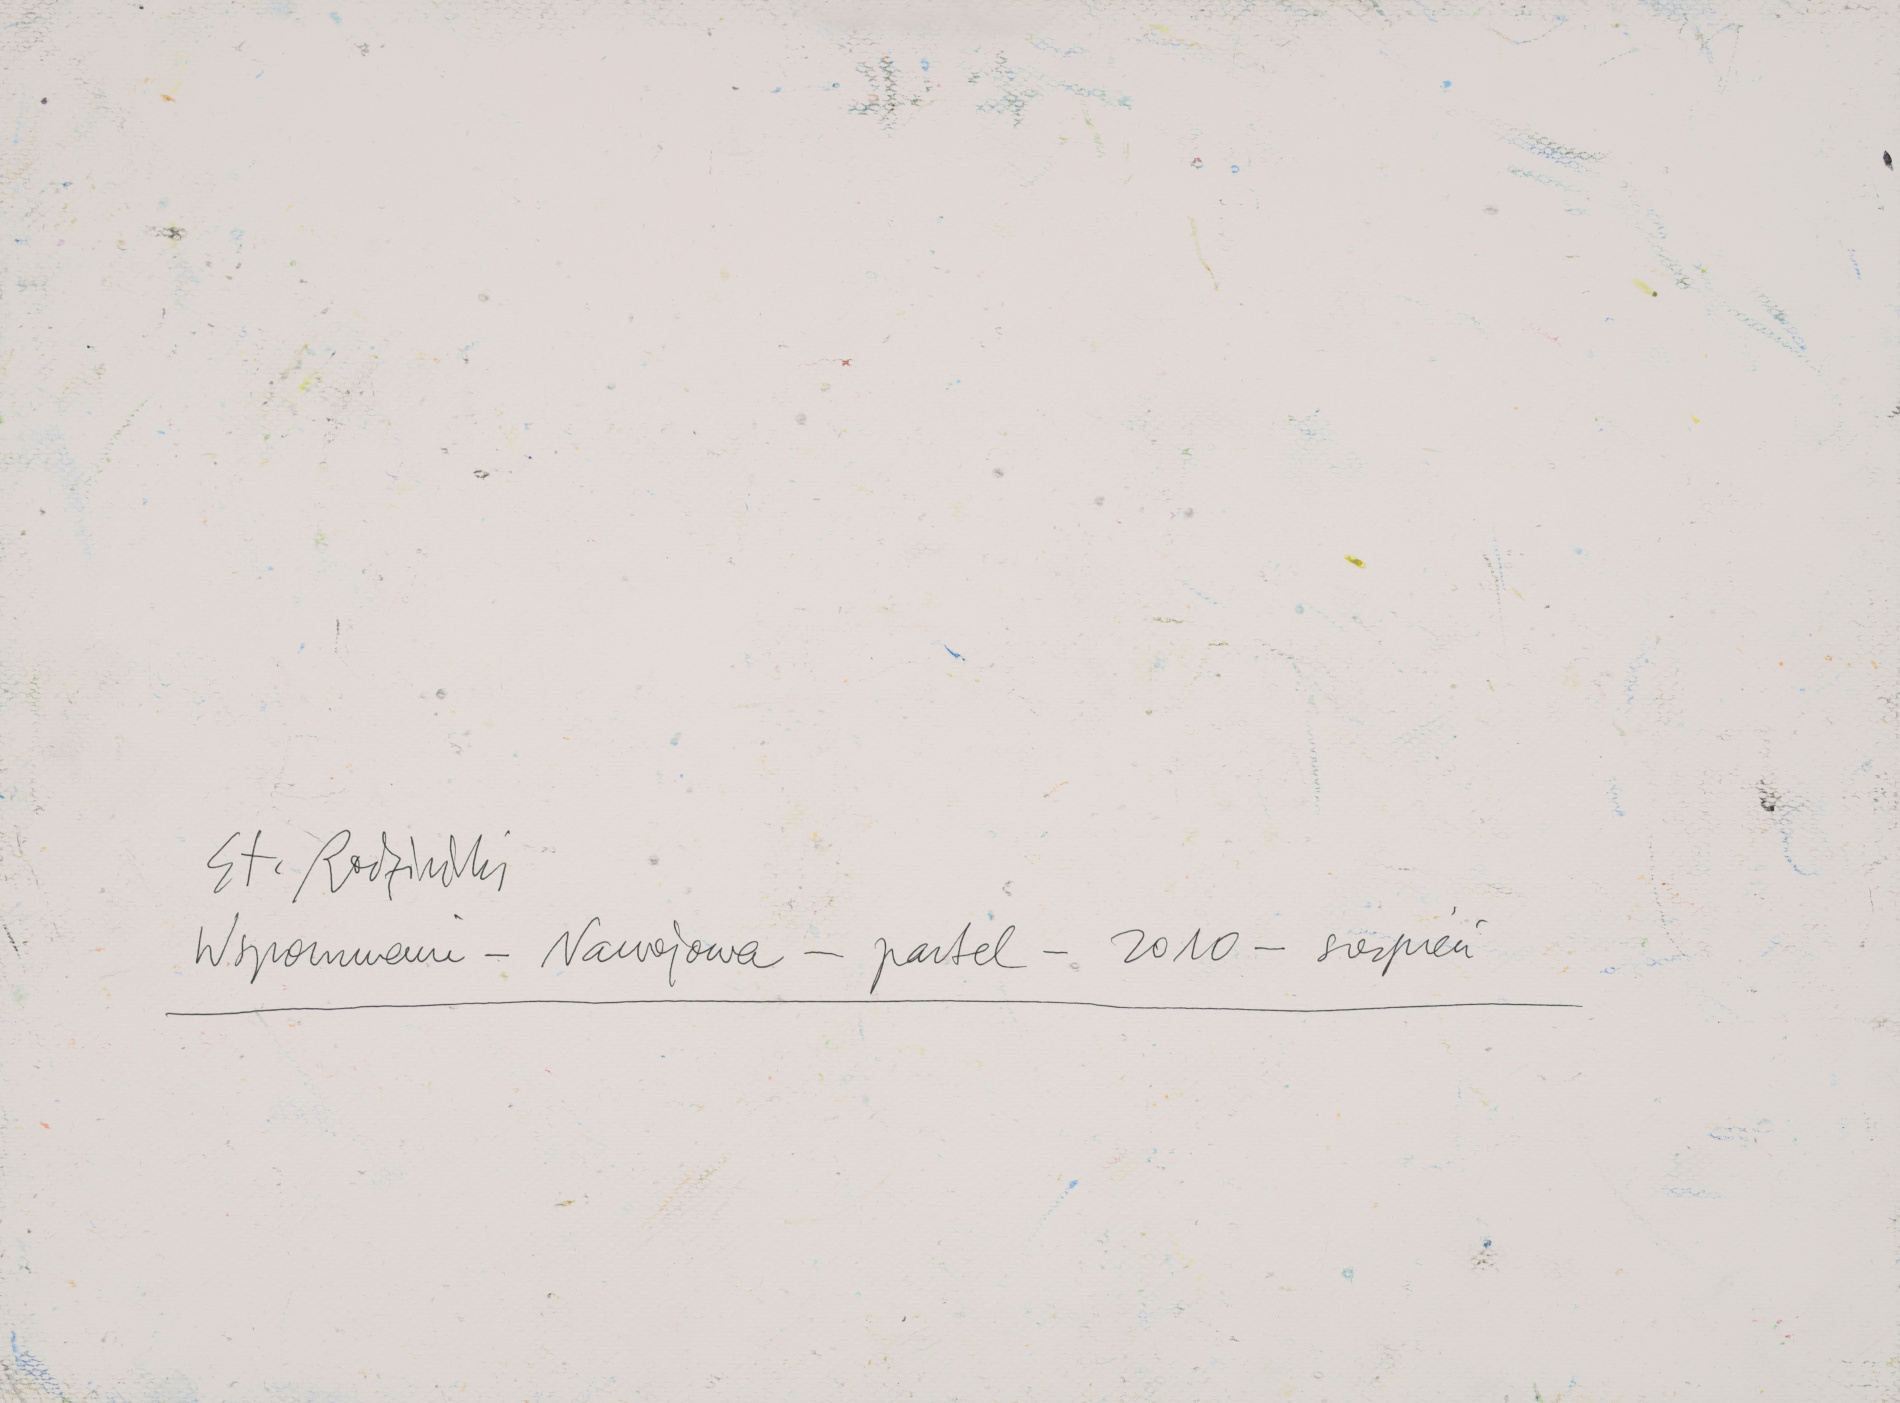 St. Rodziński
Wspomnienie – Nawojowa – pastel – 2010 – sierpień